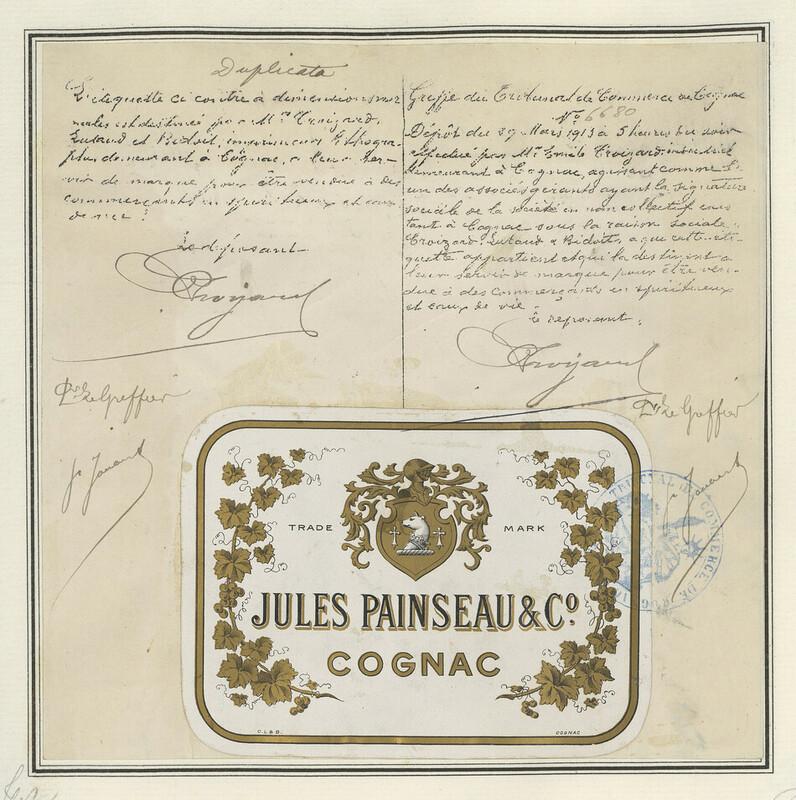 Duplicata
L'étiquette ci contre à dimensions nor
males est destinée par MM. Croizard,
Lutaud et Bidoit, imprimeurs lithogra-
phes demeurant à Cognac, a leur ser-
vir de marque pour être vendue à des
commerçants en spiritueux et eaux
de vie.
Le déposant
Croizard
Pr le Greffier
Greffe du Tribunal de Commerce de Cognac
No 6680
Dépôt du 29 Mars 1913 à 5 heures du soir
effectué par Mr Emile Croizard industriel
demeurant à Cognac, agissant comme l'
un des associés gérants ayant la signature
sociale de la société en nom collectif exis
tant à Cognac sous la raison sociale
Croizard, Lutaud & Bidoit, a que cette éti-
quette appartient et qui la destinent a
leur servir de marque pour être ven-
due à des commerçants en spiritueux
et eaux de vie.
Le déposant,
Croizard
Pr le Greffier
TRIBUNAL DE COMMERCE DE COGNAC
TRADE MARK
JULES PAINSEAU & Co
COGNAC
C.L & B. COGNAC